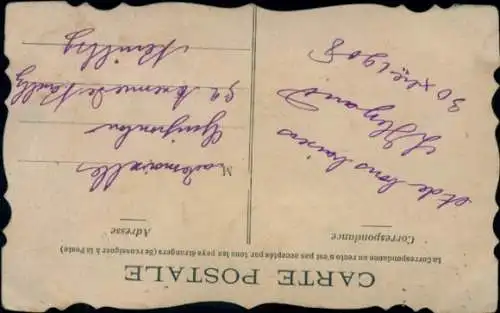 CARTE POSTALE
La Correspondance au recto n'est pas acceptée par tous les pays étrangers (Se renseigner à la Poste)
Correspondance
et de bons baisers
30 Xbre 1908
Adresse
Mademoiselle
52 Avenue de Neuilly
Neuilly